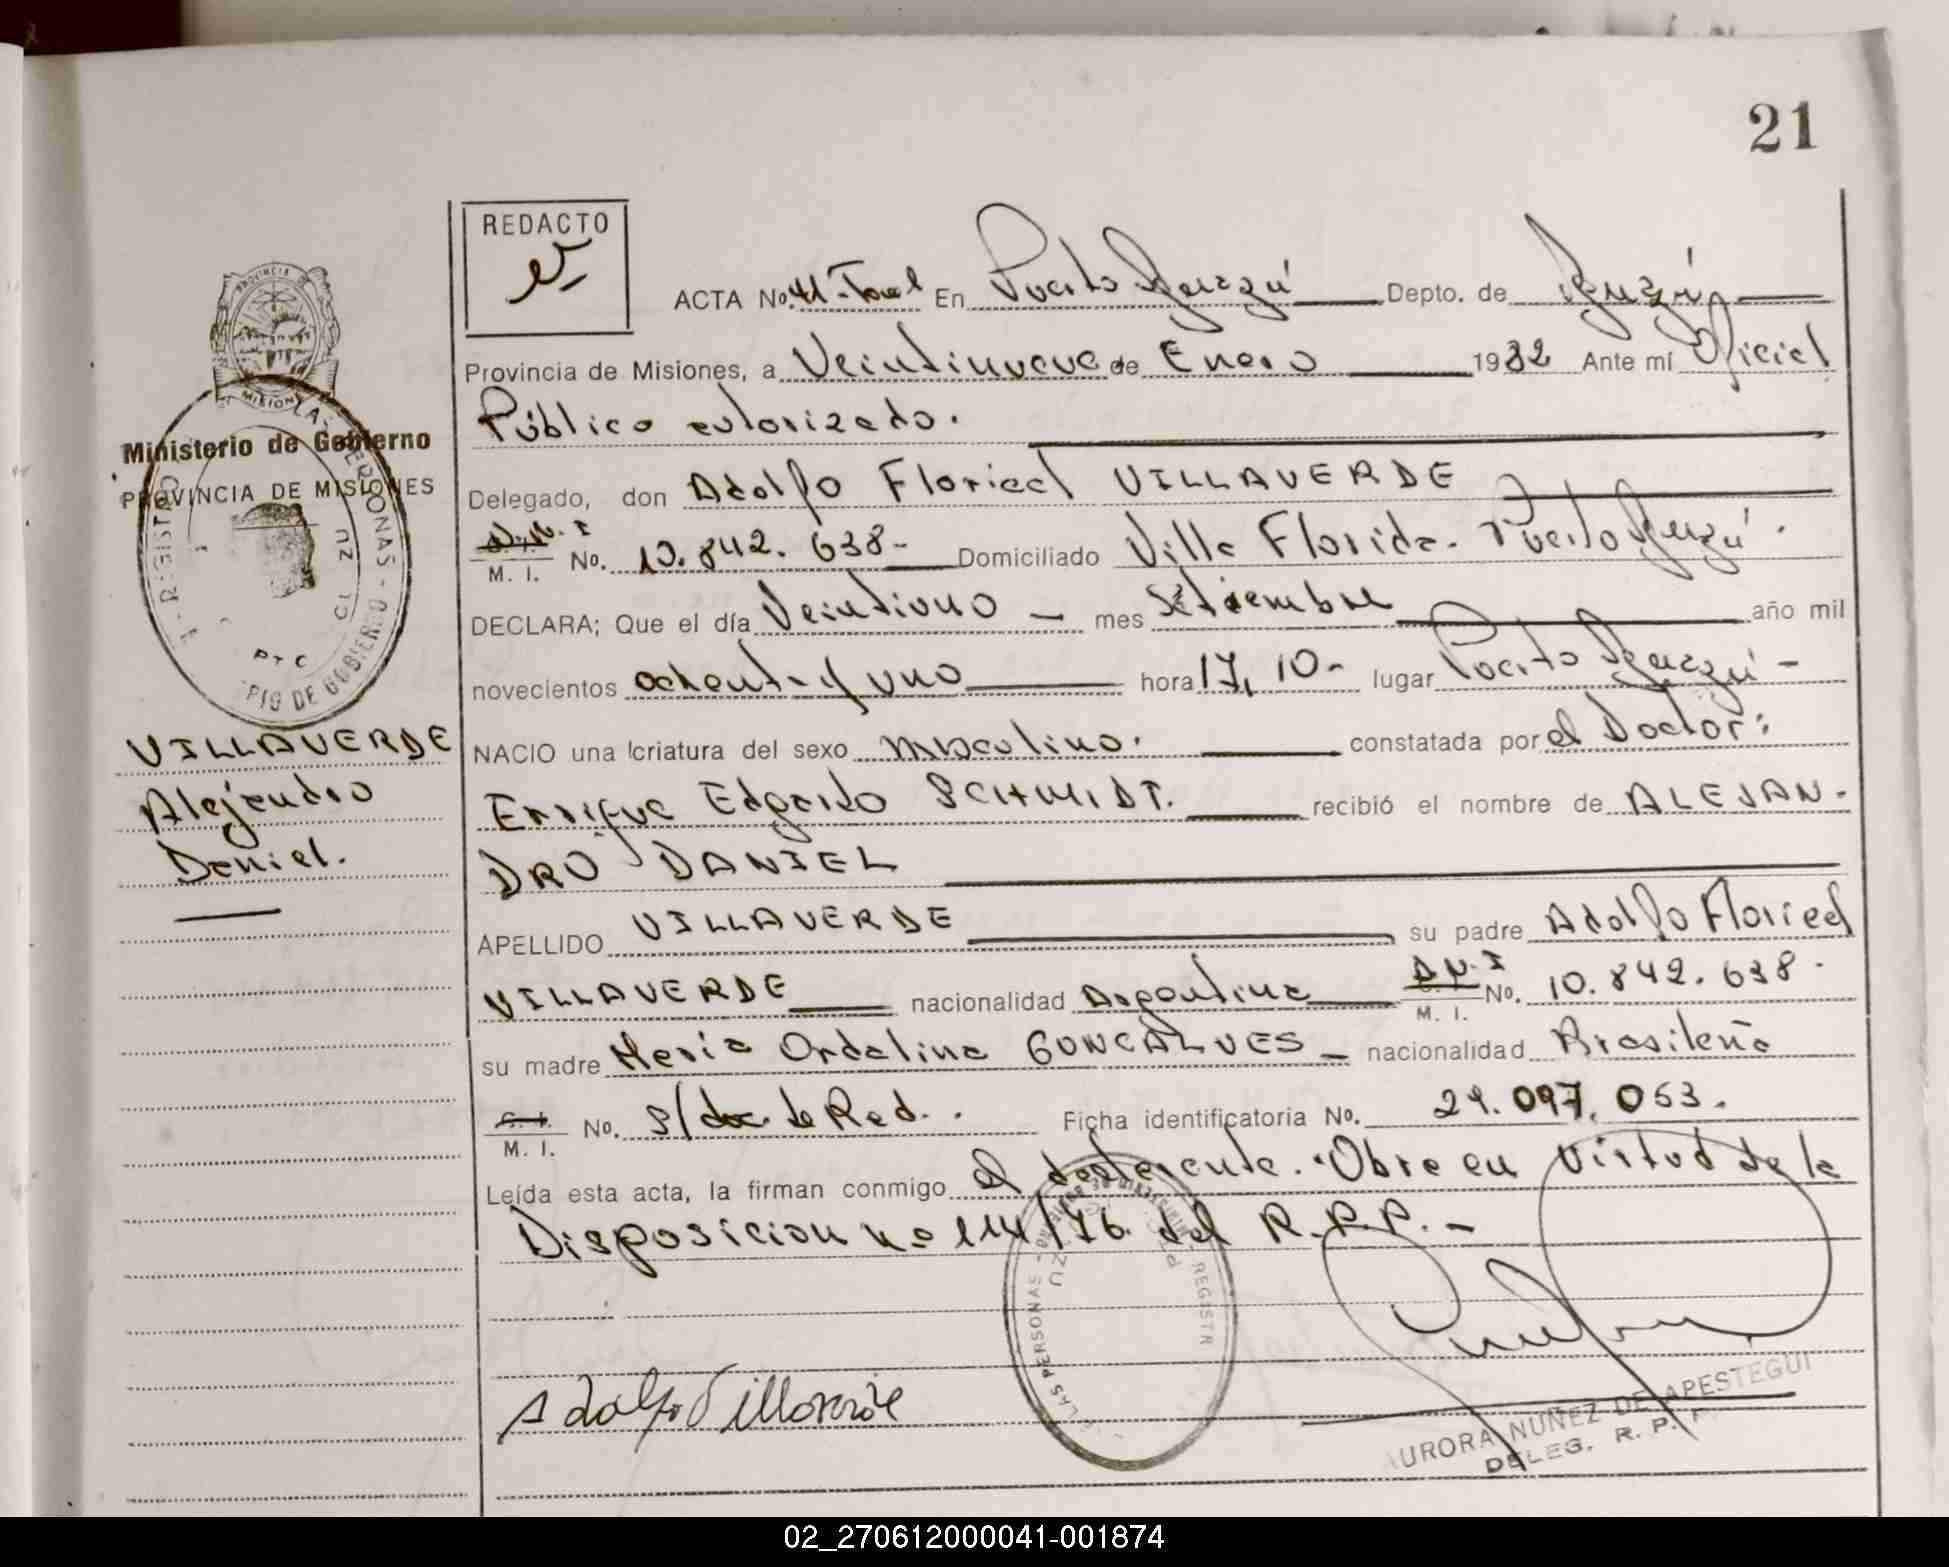 21
REDACTO
ACTA No. 41- En Puerto Iguazú Depto. de Iguazú
Provincia de Misiones, a Veintinueve de Enero 1982 Ante mí Oficial
Público autorizado.
Ministerio de Gobierno
PROVINCIA DE MISIONES
Delegado, don Adolfo Floricel VILLAVERDE
D.N.I
M. I. No. 10.842.638- Domiciliado Villa Florida- Puerto Iguazú.
DECLARA; Que el día Veintiuno - mes Setiembre año mil
novecientos ochenta y uno hora 17,10- lugar Puerto Iguazú-
VILLAVERDE
Alejandro
Daniel.
NACIO una criatura del sexo masculino. constatada por el Doctor:
Enrique Edgardo SCHMIDT. recibió el nombre de ALEJAN-
DRO DANIEL
APELLIDO VILLAVERDE su padre Adolfo Floricel
VILLAVERDE nacionalidad Argentina D.N.I M. I. No. 10.842.638.
su madre María Ordalina GONCALVES - nacionalidad Brasileña
M. I. No. S/doc. de Rad.. Ficha identificatoria No. 21.097.053.
Leída esta acta, la firman conmigo el declarante. Obra en virtud de la
Disposicion no 114/76. del R.P.P.-
Adolfo Villaverde
AURORA NUÑEZ DE APESTEGUI
DELEG. R. P. P.
02_270612000041-001874